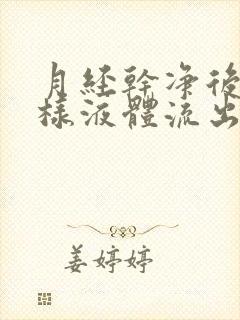 月經幹凈後
樣液體流出
姜婷婷